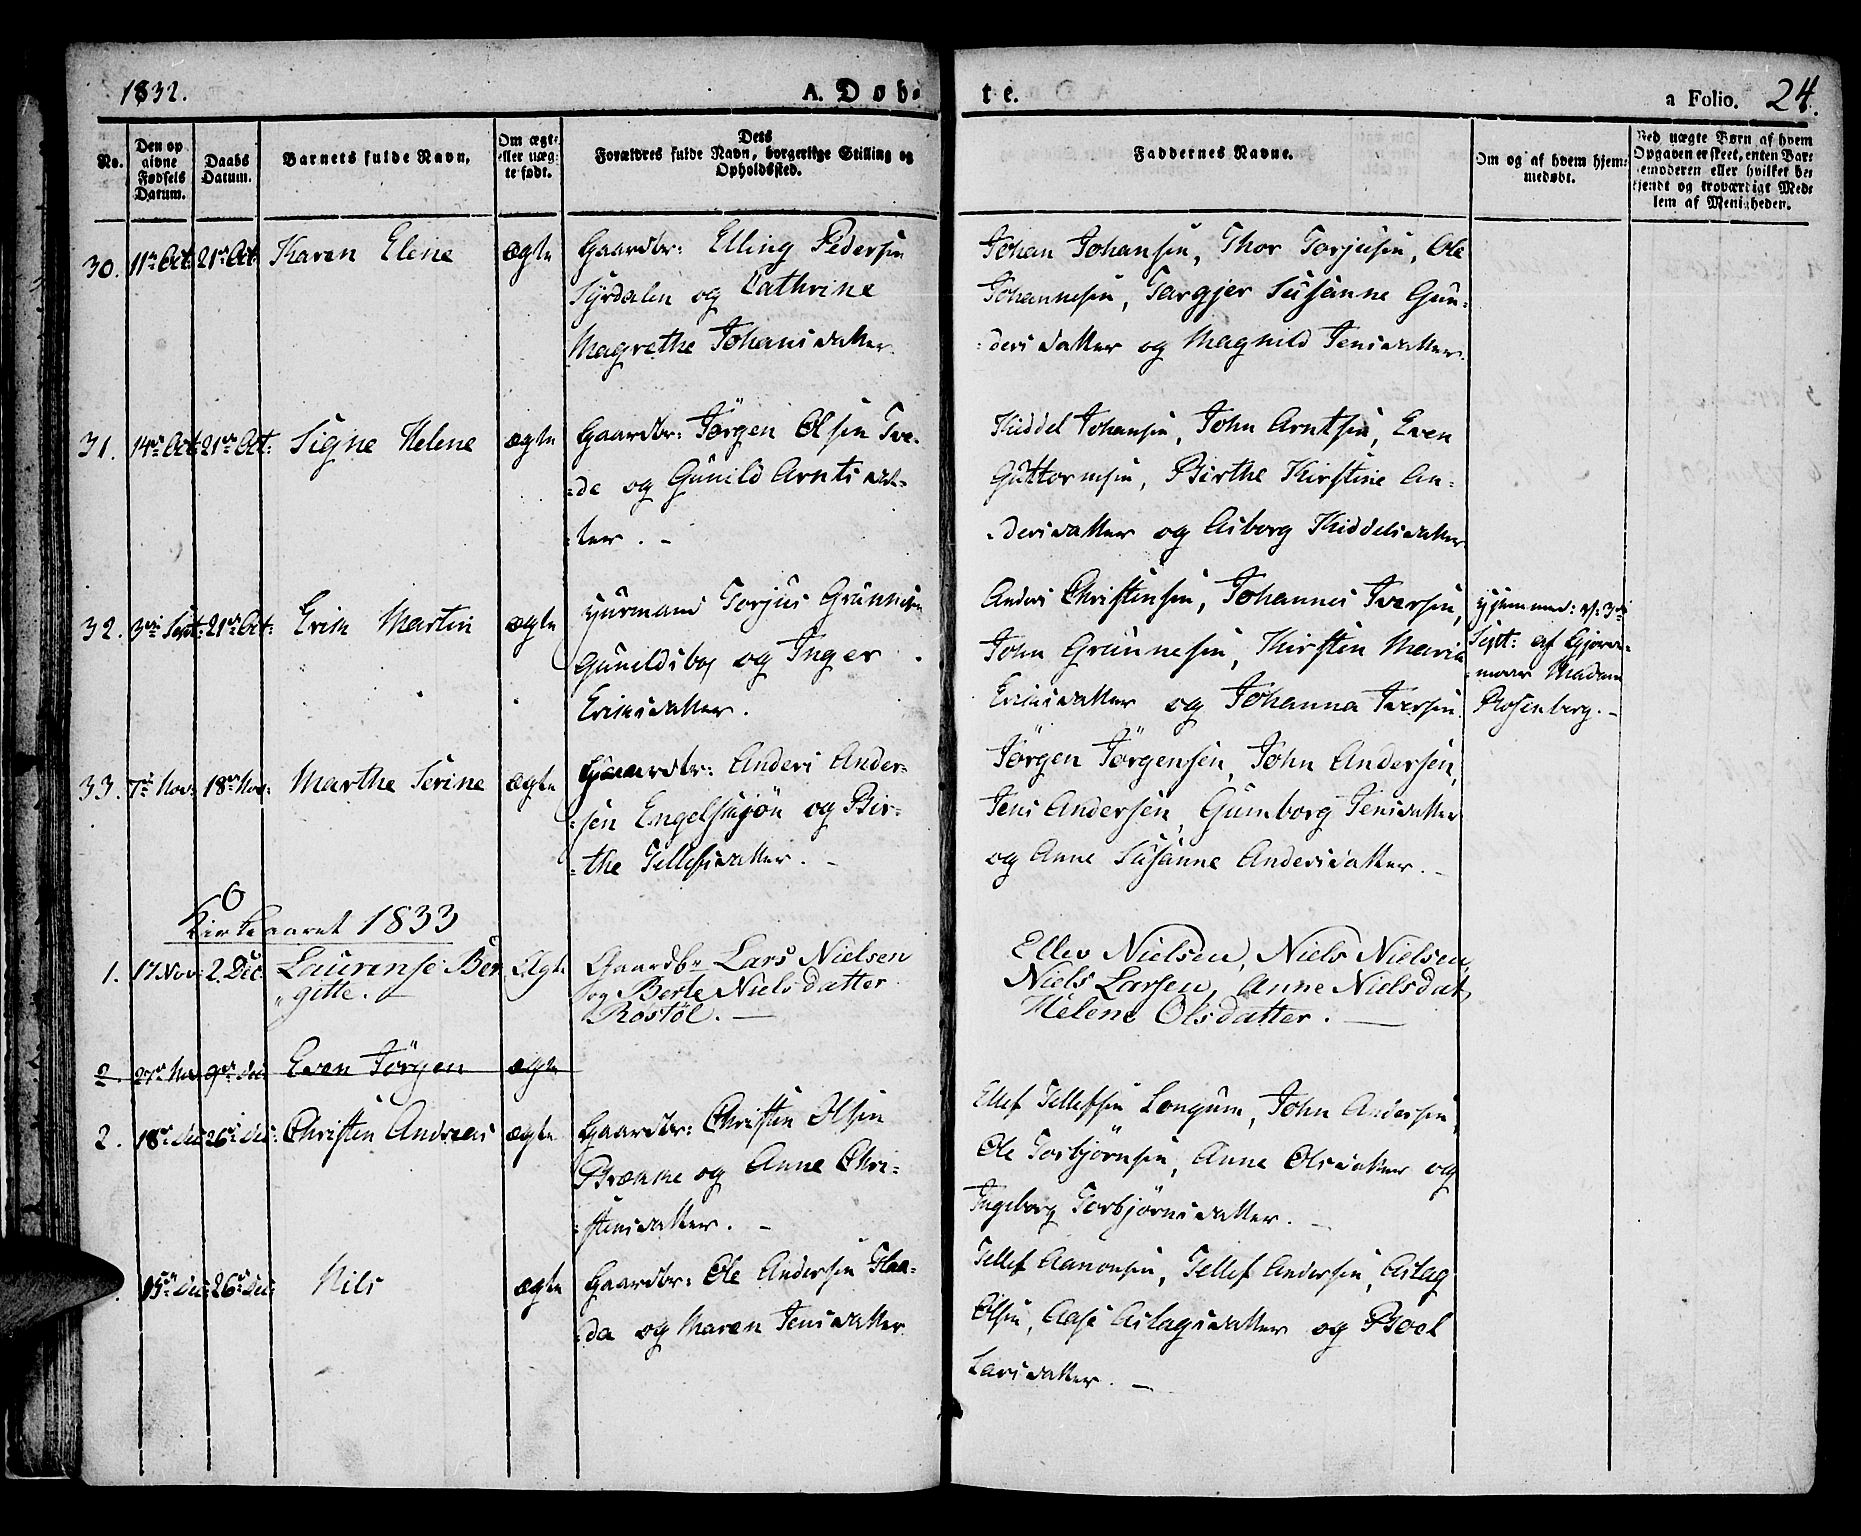 1832.
A. Døb-
te.
a Folio. 24.
No.
Den op
givne
Fødsels
Datum.
Daabs
Datum.
Barnets fulde Navn.
Om ægte
eller uæg-
te født.
Dets
Forældres fulde Navn, borgerlige Stilling og
Opholdssted.
Faddernes Navne.
Om og af hvem hjem-
medøbt.
Ved uægte Børn af hvem
Opgaven er skeet, enten Bar-
nemoderen eller hvilket be-
kjendt og troværdigt Med-
lem af Menigheden.
30. 11te Oct: 21de Oct: Karen Elene ægte Gaardbr: Elling Pedersen
Syrdalen og Cathrine
Magrethe Johansdatter
Johan Johansen, Thor Torjusen, Ole
Johannesen, Targjer Susanne Gun-
-dersdatter og Magnild Jensdatter.
31. 14de Oct: 21de Oct: Signe Helene ægte Gaardbr: Jörgen Olsen Tve-
-de og Gunild Arntsdat-
-ter. -
Kiddel Johansen, John Arntsen, Even
Guttormsen, Birthe Kirstine An-
-dersdatter og Asborg Kiddelsdatter
32. 3die Sept: 21de Oct: Erik Martin ægte Huusmand Torjus Grunnesen
Gunildsboe og Inger
Eriksdatter.
Anders Christensen, Johannes Iversen,
John Grunnesen, Kirsten Maria
Eriksdatter og Johanna Iversen.
Hjemmed: d: 3die
Sept: af Gjorde-
-moder Madam
Rosenberg. -
33. 7de Nov: 18de Nov: Marthe Serine ægte Gaardbr: Anders Ander-
-sen Engelsmjön og Bir-
-the Tellefsdatter. -
Jörgen Jörgensen, John Andersen,
Jens Andersen, Gumborg Jensdatter
og Anne Susanne Andersdatter. -
Kirkeaaret 1833
1. 17 Nov: 2. Dec: Laurense Ber
"gitte. - Ægte Gaardbr Lars Nielsen
og Berte Nielsdatter
Røstøl. -
Ellev Nielsen, Niels Nielsen,
Niels Larsen, Anne Nielsdat,
Helene Olsdatter. -
2. 27de Nov 9de Dec Even Jörgen ægte
2. 18de Dec 26de Dec: Christen Andreas ægte Gaardbr: Christen Olsen
Brække og Anne Chri-
-stensdatter. -
Ellef Tellefsen Longum, John Andersen,
Ole Torbjörnsen, Anne Olsdatter og
Ingeborg Torbjörnsdatter. -
15de Dec: 26de Dec: Nils ægte Gaardbr: Ole Andersen Flaa-
-da og Maren Jensdatter
Tellef Aanonsen, Tellef Andersen, Aslag
Olsen, Aase Aslagsdatter og Boel
Larsdatter. -